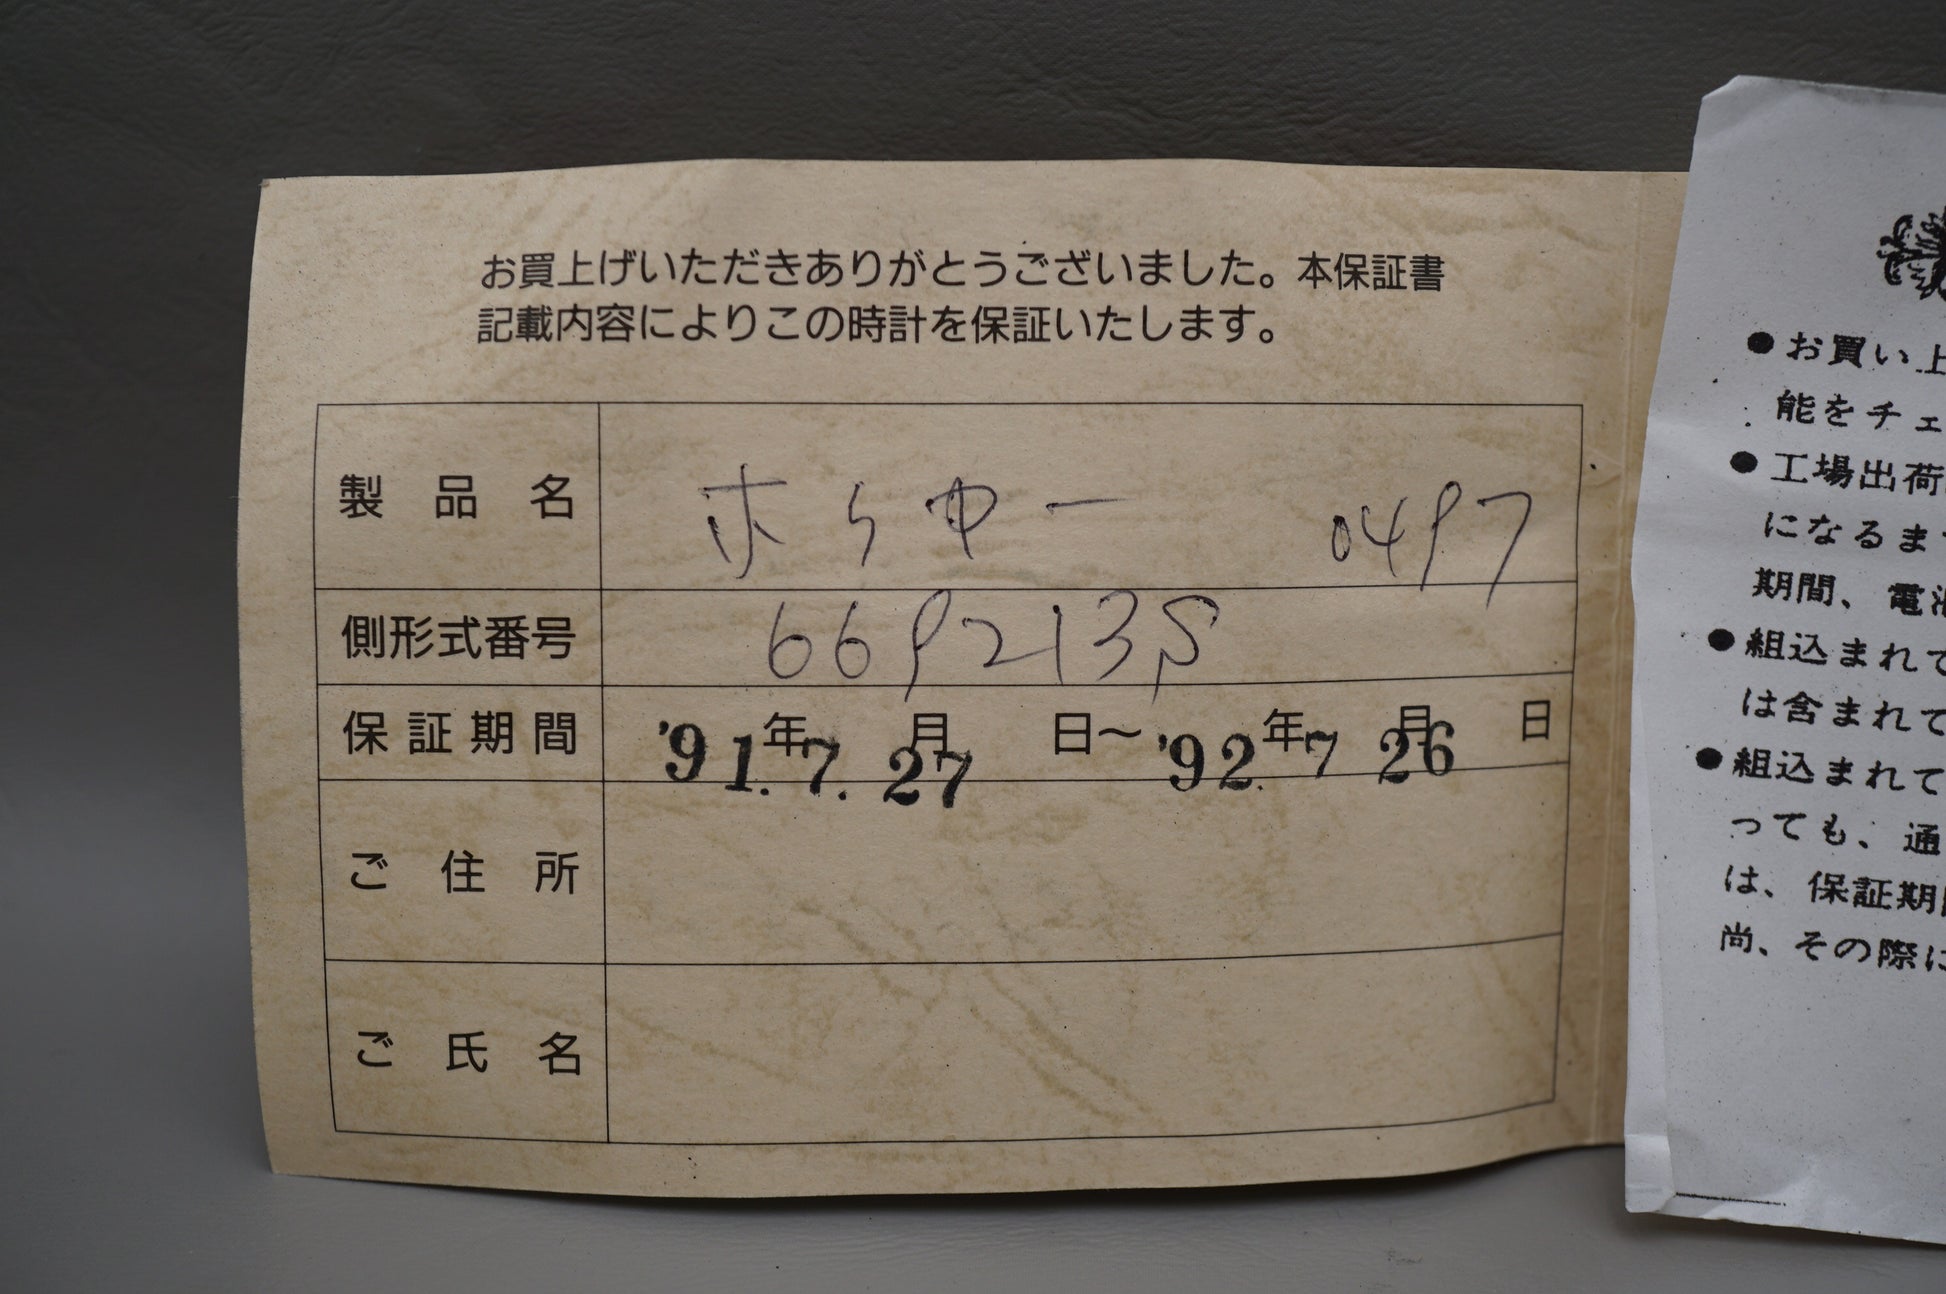 お買上げいただきありがとうございました。本保証書
記載内容によりこの時計を保証いたします。
製品名 ホーー 0497
側形式番号 669213S
保証期間 '91年7.月27日〜'92.年7月26日
ご住所
ご氏名
●お買い上
能をチェ
●工場出荷
になるま
期間、電池
●組込まれて
は含まれて
●組込まれて
っても、通
は、保証期間
尚、その際に